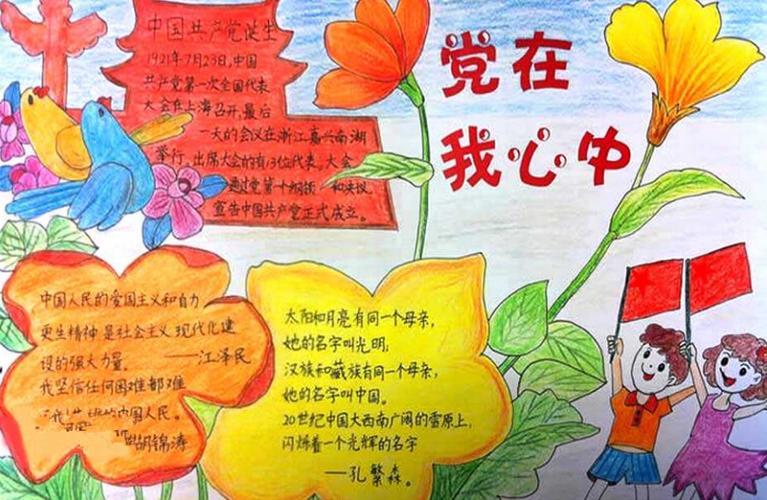 中国共产党诞生
1921年7月23日,中国
共产党第一次全国代表
大会在上海召开,最后
一天的会议在浙江嘉兴南湖
举行。出席大会的有13位代表。大会
通过党第十纲领 和决议,
宣告中国共产党正式成立。
党在
我心中
中国人民的爱国主义和自力
更生精神是社会主义现代化建
设的强大力量。——江泽民
我坚信任何困难都难
的中国人民。
胡锦涛
太阳和月亮有同一个母亲,
她的名字叫光明,
汉族和藏族有同一个母亲,
她的名字叫中国。
20世纪中国大西南广阔的雪原上,
闪烁着一个光辉的名字
——孔繁森。